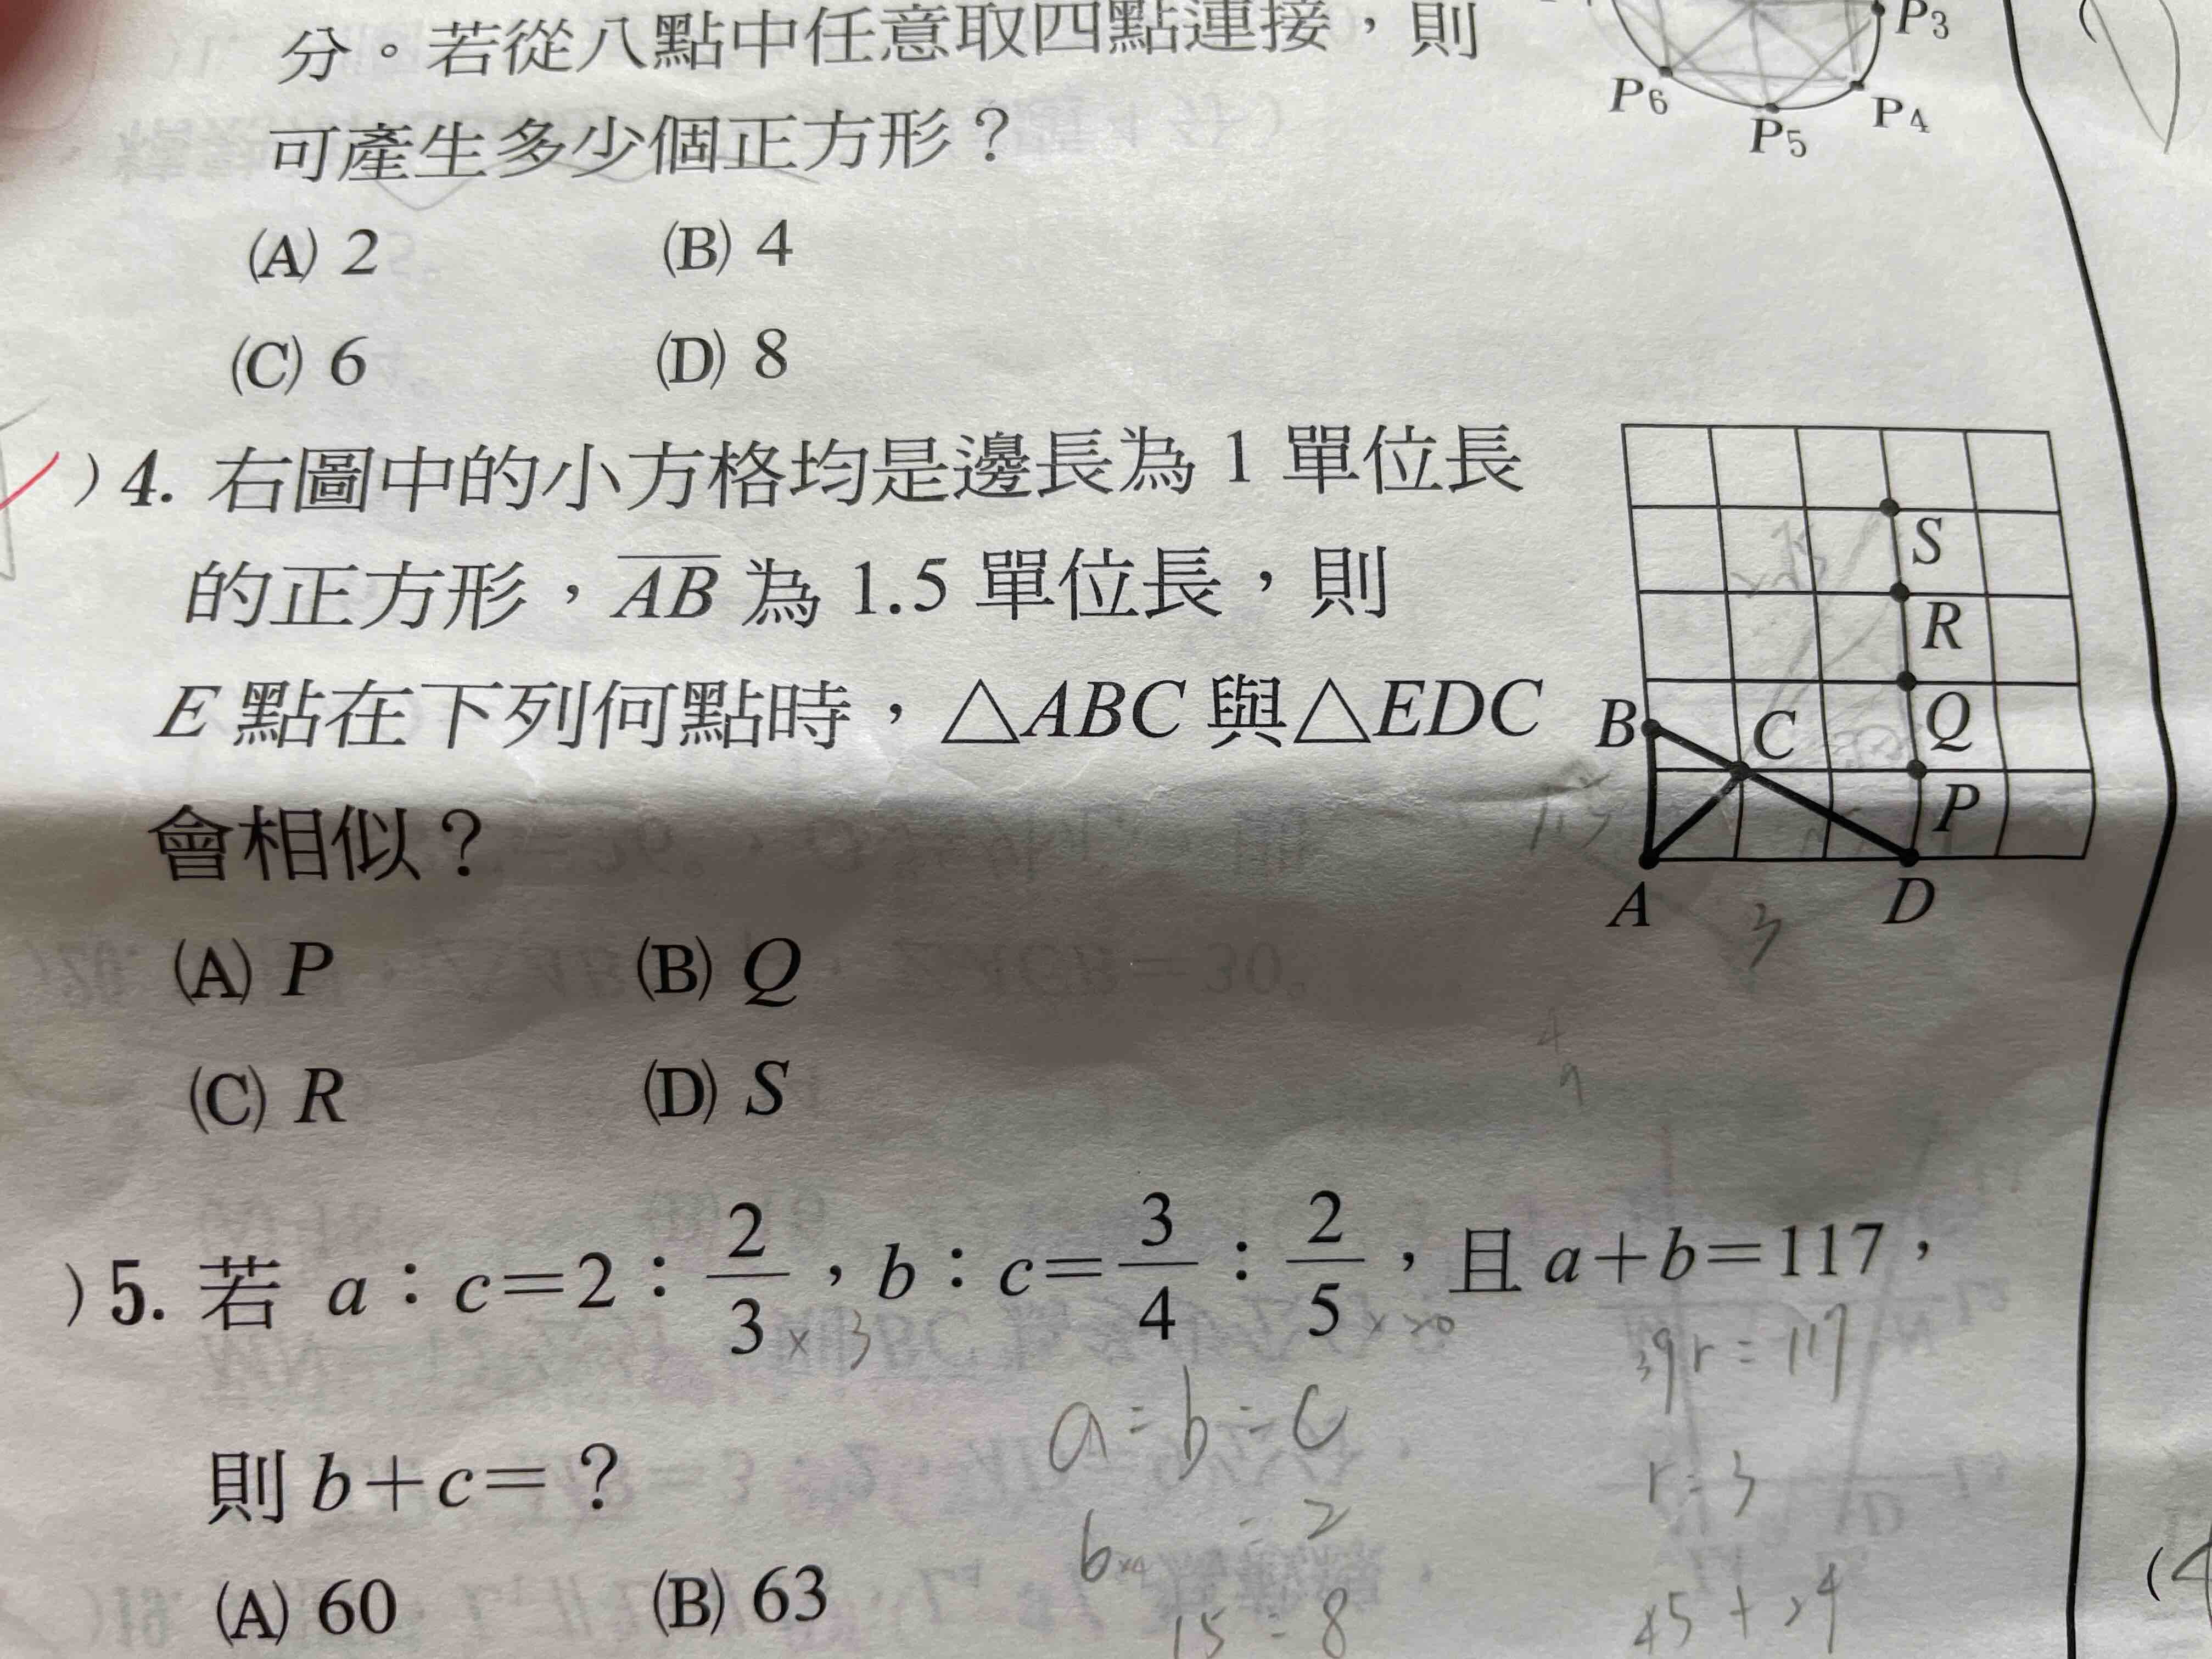 分。若從八點中任意取四點連接，則
可產生多少個正方形？
(A) 2 (B) 4
(C) 6 (D) 8
P3
P6
P5
P4
)4. 右圖中的小方格均是邊長為 1 單位長
的正方形，AB 為 1.5 單位長，則
E 點在下列何點時，△ABC 與△EDC
會相似？
(A) P (B) Q
(C) R (D) S
S
R
Q
P
B
C
A
D
3
)5. 若 a：c=2：2/3，b：c=3/4：2/5，且 a+b=117，
×3
×20
39r=117
a:b:c
r=3
則 b+c=？
6 : 2
15:8
45+24
(A) 60 (B) 63